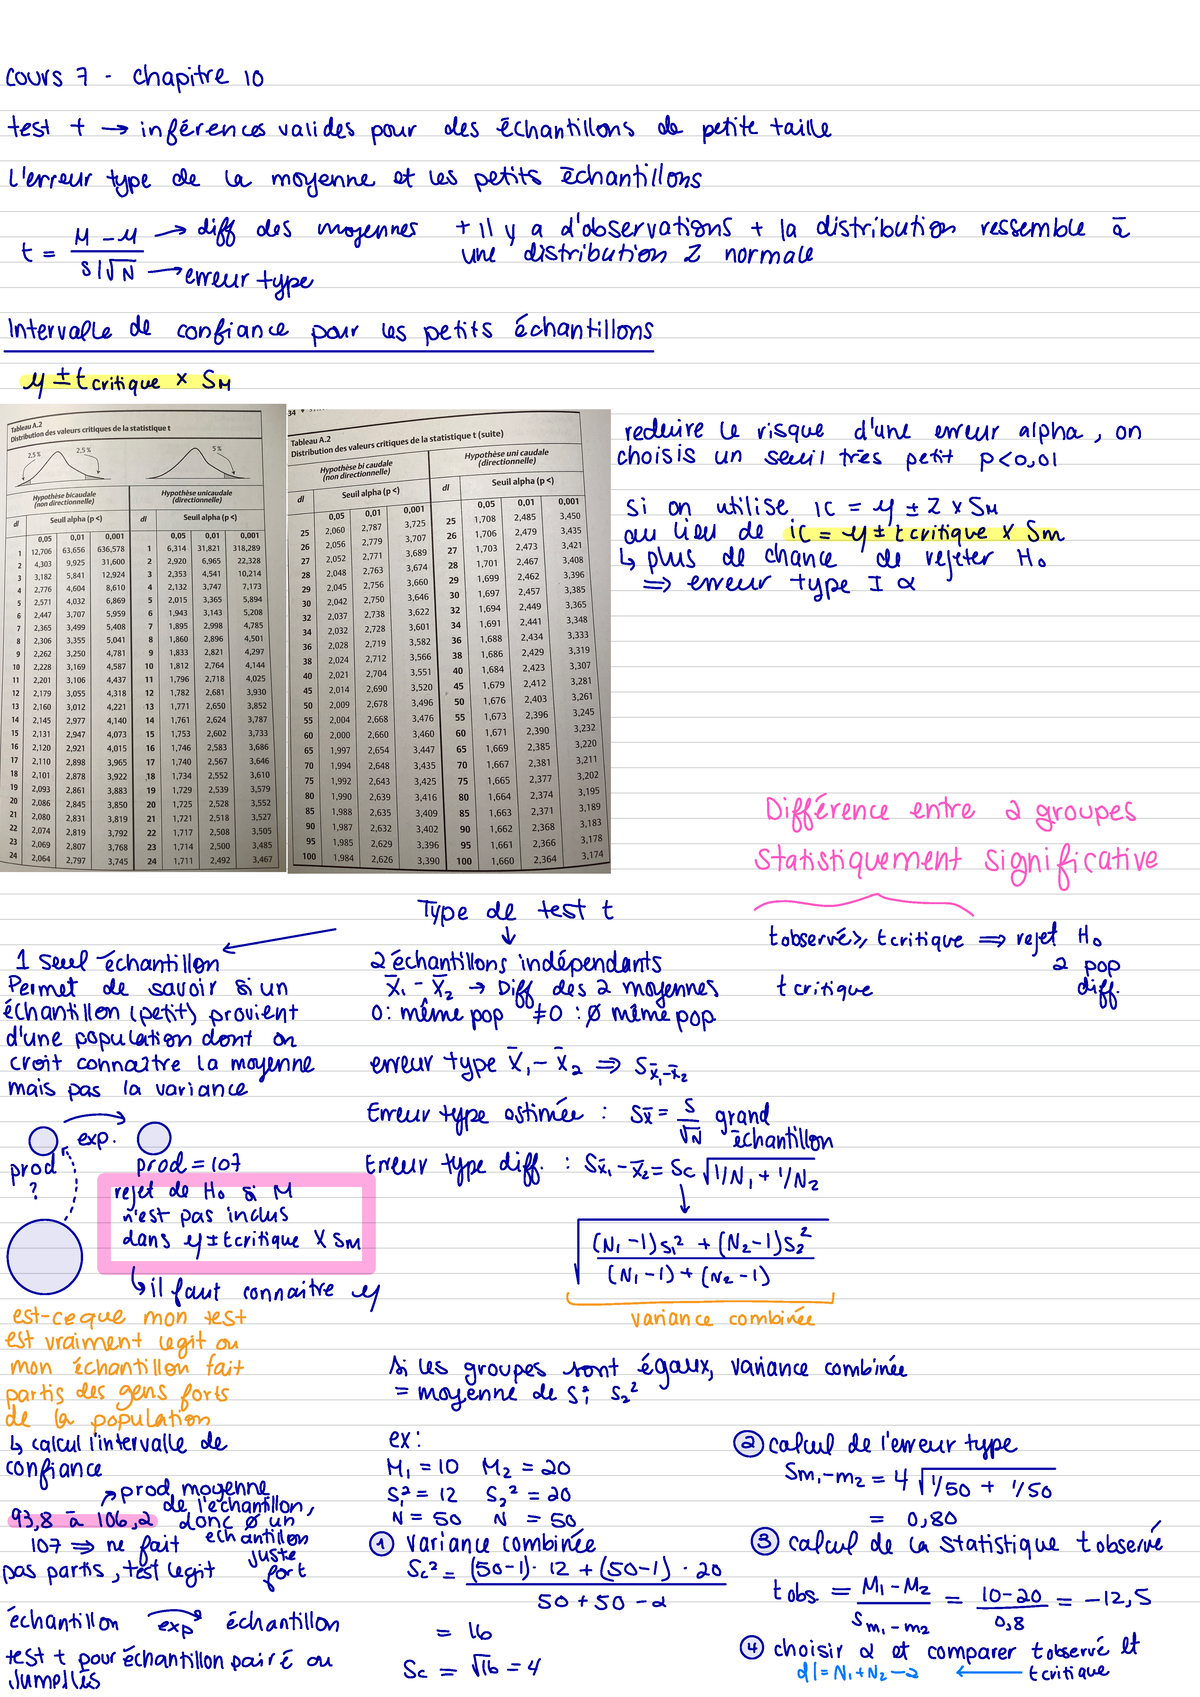 cours 7 - chapitre 10
test t → inférences valides pour des échantillons de petite taille
L'erreur type de la moyenne et les petits échantillons
t = M - μ / S/√N → diff des moyennes
→ erreur type
+ il y a d'observations + la distribution ressemble à
une distribution Z normale
Intervalle de confiance pour les petits échantillons
μ ± t critique × SM
Tableau A.2
Distribution des valeurs critiques de la statistique t
2,5 % 2,5 % 5 %
Hypothèse bicaudale (non directionnelle) Hypothèse unicaudale (directionnelle)
dl Seuil alpha (p <) dl Seuil alpha (p <)
0,05 0,01 0,001 0,05 0,01 0,001
1 12,706 63,656 636,578 1 6,314 31,821 318,289
2 4,303 9,925 31,600 2 2,920 6,965 22,328
3 3,182 5,841 12,924 3 2,353 4,541 10,214
4 2,776 4,604 8,610 4 2,132 3,747 7,173
5 2,571 4,032 6,869 5 2,015 3,365 5,894
6 2,447 3,707 5,959 6 1,943 3,143 5,208
7 2,365 3,499 5,408 7 1,895 2,998 4,785
8 2,306 3,355 5,041 8 1,860 2,896 4,501
9 2,262 3,250 4,781 9 1,833 2,821 4,297
10 2,228 3,169 4,587 10 1,812 2,764 4,144
11 2,201 3,106 4,437 11 1,796 2,718 4,025
12 2,179 3,055 4,318 12 1,782 2,681 3,930
13 2,160 3,012 4,221 13 1,771 2,650 3,852
14 2,145 2,977 4,140 14 1,761 2,624 3,787
15 2,131 2,947 4,073 15 1,753 2,602 3,733
16 2,120 2,921 4,015 16 1,746 2,583 3,686
17 2,110 2,898 3,965 17 1,740 2,567 3,646
18 2,101 2,878 3,922 18 1,734 2,552 3,610
19 2,093 2,861 3,883 19 1,729 2,539 3,579
20 2,086 2,845 3,850 20 1,725 2,528 3,552
21 2,080 2,831 3,819 21 1,721 2,518 3,527
22 2,074 2,819 3,792 22 1,717 2,508 3,505
23 2,069 2,807 3,768 23 1,714 2,500 3,485
24 2,064 2,797 3,745 24 1,711 2,492 3,467
34
Tableau A.2
Distribution des valeurs critiques de la statistique t (suite)
Hypothèse bi caudale (non directionnelle) Hypothèse uni caudale (directionnelle)
dl Seuil alpha (p <) dl Seuil alpha (p <)
0,05 0,01 0,001 0,05 0,01 0,001
25 2,060 2,787 3,725 25 1,708 2,485 3,450
26 2,056 2,779 3,707 26 1,706 2,479 3,435
27 2,052 2,771 3,689 27 1,703 2,473 3,421
28 2,048 2,763 3,674 28 1,701 2,467 3,408
29 2,045 2,756 3,660 29 1,699 2,462 3,396
30 2,042 2,750 3,646 30 1,697 2,457 3,385
32 2,037 2,738 3,622 32 1,694 2,449 3,365
34 2,032 2,728 3,601 34 1,691 2,441 3,348
36 2,028 2,719 3,582 36 1,688 2,434 3,333
38 2,024 2,712 3,566 38 1,686 2,429 3,319
40 2,021 2,704 3,551 40 1,684 2,423 3,307
45 2,014 2,690 3,520 45 1,679 2,412 3,281
50 2,009 2,678 3,496 50 1,676 2,403 3,261
55 2,004 2,668 3,476 55 1,673 2,396 3,245
60 2,000 2,660 3,460 60 1,671 2,390 3,232
65 1,997 2,654 3,447 65 1,669 2,385 3,220
70 1,994 2,648 3,435 70 1,667 2,381 3,211
75 1,992 2,643 3,425 75 1,665 2,377 3,202
80 1,990 2,639 3,416 80 1,664 2,374 3,195
85 1,988 2,635 3,409 85 1,663 2,371 3,189
90 1,987 2,632 3,402 90 1,662 2,368 3,183
95 1,985 2,629 3,396 95 1,661 2,366 3,178
100 1,984 2,626 3,390 100 1,660 2,364 3,174
reduire le risque d'une erreur alpha, on
choisis un seuil très petit p<0,01
si on utilise IC = μ ± Z × SM
au lieu de ic = μ ± t critique × Sm
↳ plus de chance de rejeter Ho
⇒ erreur type I α
Différence entre 2 groupes
statistiquement significative
t observé ≥ t critique ⇒ rejet Ho
2 pop
diff.
t critique
Type de test t
1 seul échantillon
Permet de savoir si un
échantillon (petit) provient
d'une population dont on
croit connaître la moyenne
mais pas la variance
exp.
prod ?
prod = 107
rejet de Ho si M
n'est pas inclus
dans μ ± tcritique × SM
↳ il faut connaitre μ
est-ce que mon test
est vraiment legit ou
mon échantillon fait
partis des gens forts
de la population
↳ calcul l'intervalle de
confiance
↗ prod moyenne
de l'échantillon,
93,8 à 106,2 donc ø un
échantillon
107 ⇒ ne fait juste
pas partis, test legit fort
échantillon exp échantillon
test t pour échantillon pairé ou
Jumellés
2 échantillons indépendants
X̄1 - X̄2 → Diff des 2 moyennes
0: même pop ≠0 : ø même pop
erreur type X̄1 - X̄2 ⇒ Sx̄1-x̄2
Erreur type estimée : Sx̄ = S/√N grand
échantillon
Erreur type diff. : Sx̄1 - x̄2 = Sc √1/N1 + 1/N2
√(N1 -1)s1² + (N2 -1)S2² / (N1 -1) + (N2 -1)
variance combinée
si les groupes sont égaux, variance combinée
= moyenne de S1² S2²
ex:
M1 = 10 M2 = 20
S1² = 12 S2² = 20
N = 50 N = 50
① variance combinée
Sc² = (50-1)· 12 + (50-1) · 20 / 50 + 50 - 2
= 16
Sc = √16 = 4
② calcul de l'erreur type
Sm1-m2 = 4 √1/50 + 1/50
= 0,80
③ calcul de la statistique t observé
t obs. = M1 - M2 / Sm1 - m2 = 10-20 / 0,8 = -12,5
④ choisir α et comparer t observé et
dl = N1 + N2 - 2 ← t critique